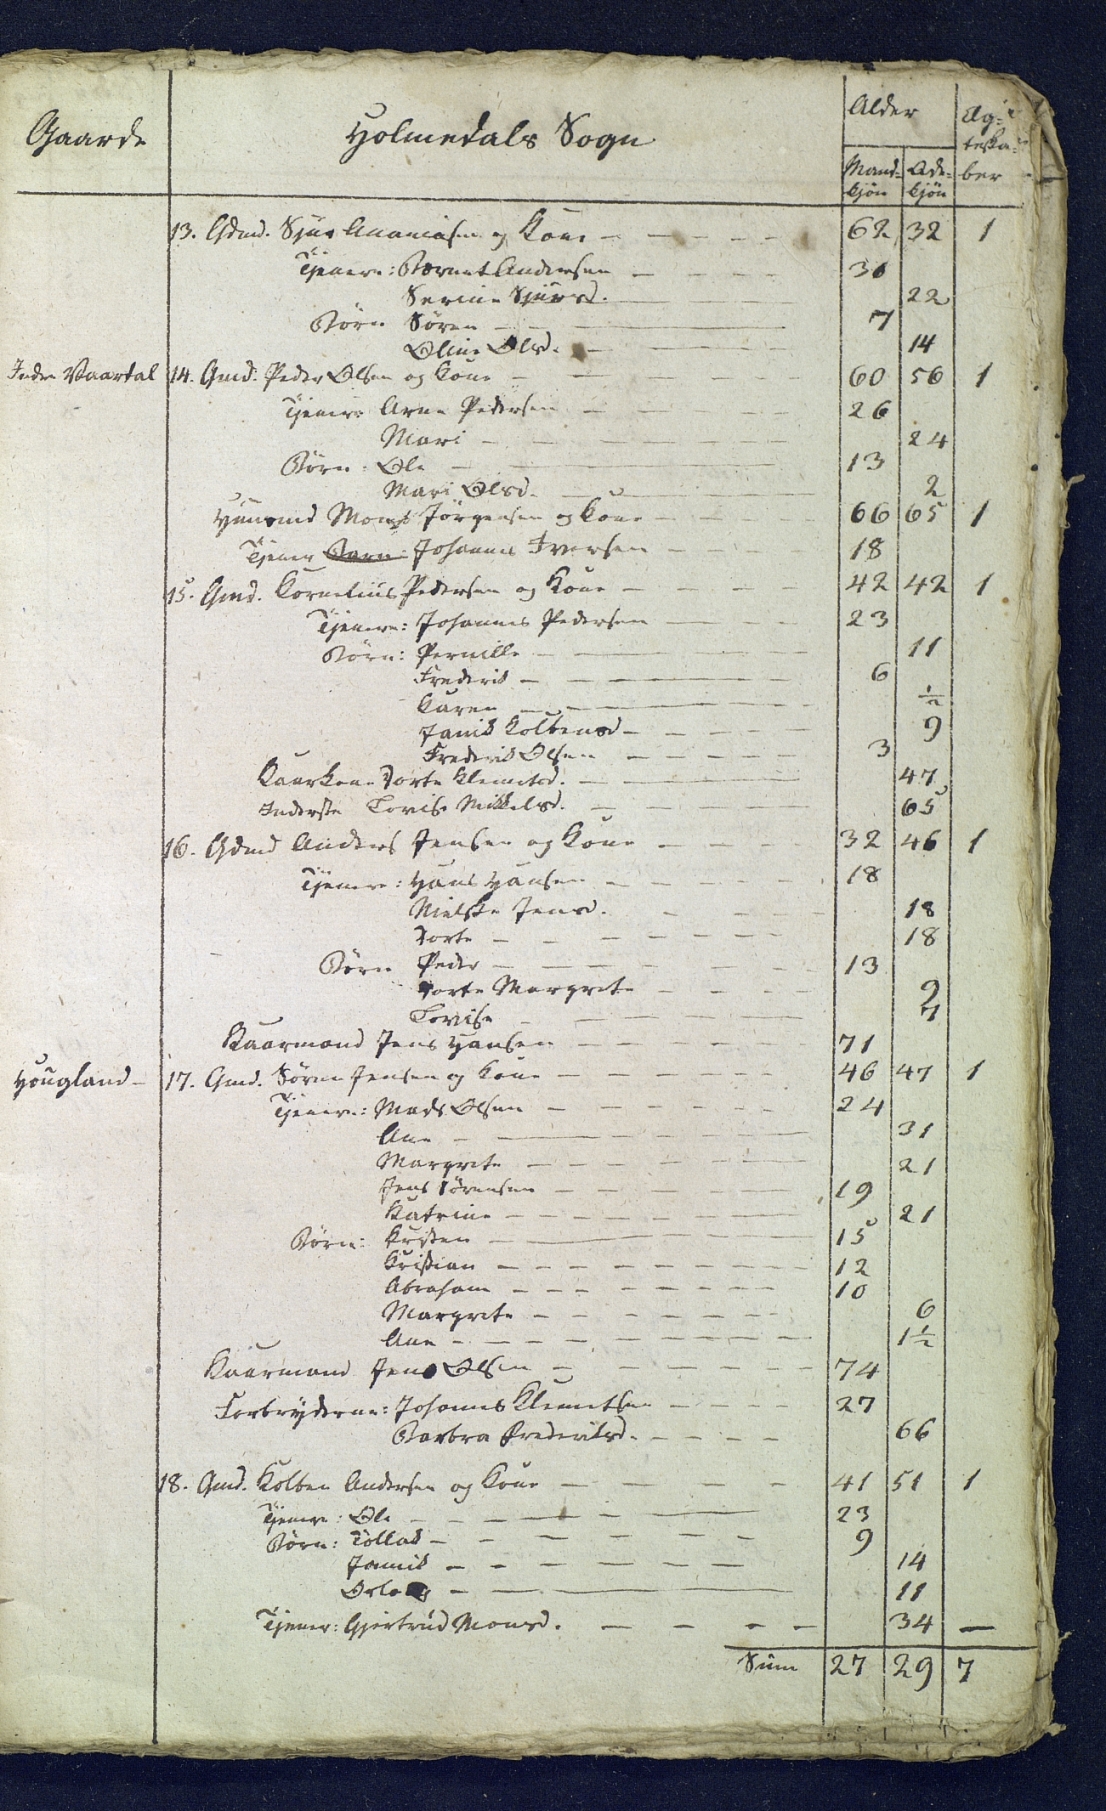 Gaarde Holmedals Sogn Alder Ægteskaber
Mandkjön Qvdekjön
13. Gdmd. Sjur Ananiasen og Kone 62 32 1
Tjenere: Bærnt Andersen 30
Serine Sjursd. 22
Börn Sören 7
Oline Olsd. 14
Indre Vaartal 14. Gmd. Peder Olsen og Kone 60 56 1
Tjenere Arne Pedersen 26
Mari 24
Börn: Ole 13
Mari Olsd. 2
Huusmd Mons Jörgensen og Kone 66 65 1
Tjener Johannes Iversen 18
15. Gmd. Kornelius Pedersen og Kone 42 42 1
Tjenere: Johannes Pedersen 23
Börn: Pernille 11
Frederik 6
Karen ½
Janik Kolbensd 9
Frederik Olsen 3
Kaarkone Dorte Klemetsd. 47
Inderste Lovise Mikkelsd. 65
16. Gdmd Anders Jensen og Kone 32 46 1
Tjenere: Hans Hansen 18
Nielske Jensd. 18
Dorte 18
Börn Peder 13
Dorte Margrete 9
Lovise 7
Kaarmand Jens Hansen 71
Hougland 17. Gmd. Sören Jensen og Kone 46 47 1
Tjenere: Mads Olsen 24
Ane 31
Margrete 21
Jens Sörensen 19
Katrine 21
Börn: Kristen 15
Kristian 12
Abraham 10
Margrete 6
Ane 1½
Kaarmand Jens Olsen 74
Forbryderne: Johannes Klemetsen 27
Barbra Frederiksd. 66
18. Gmd. Kolben Andersen og Kone 41 51 1
Tjenere: Ole 23
Börn: Tollak 9
Jannik 14
11
Tjener: Gjertrud Monsd. 34
Sum 27 29 7